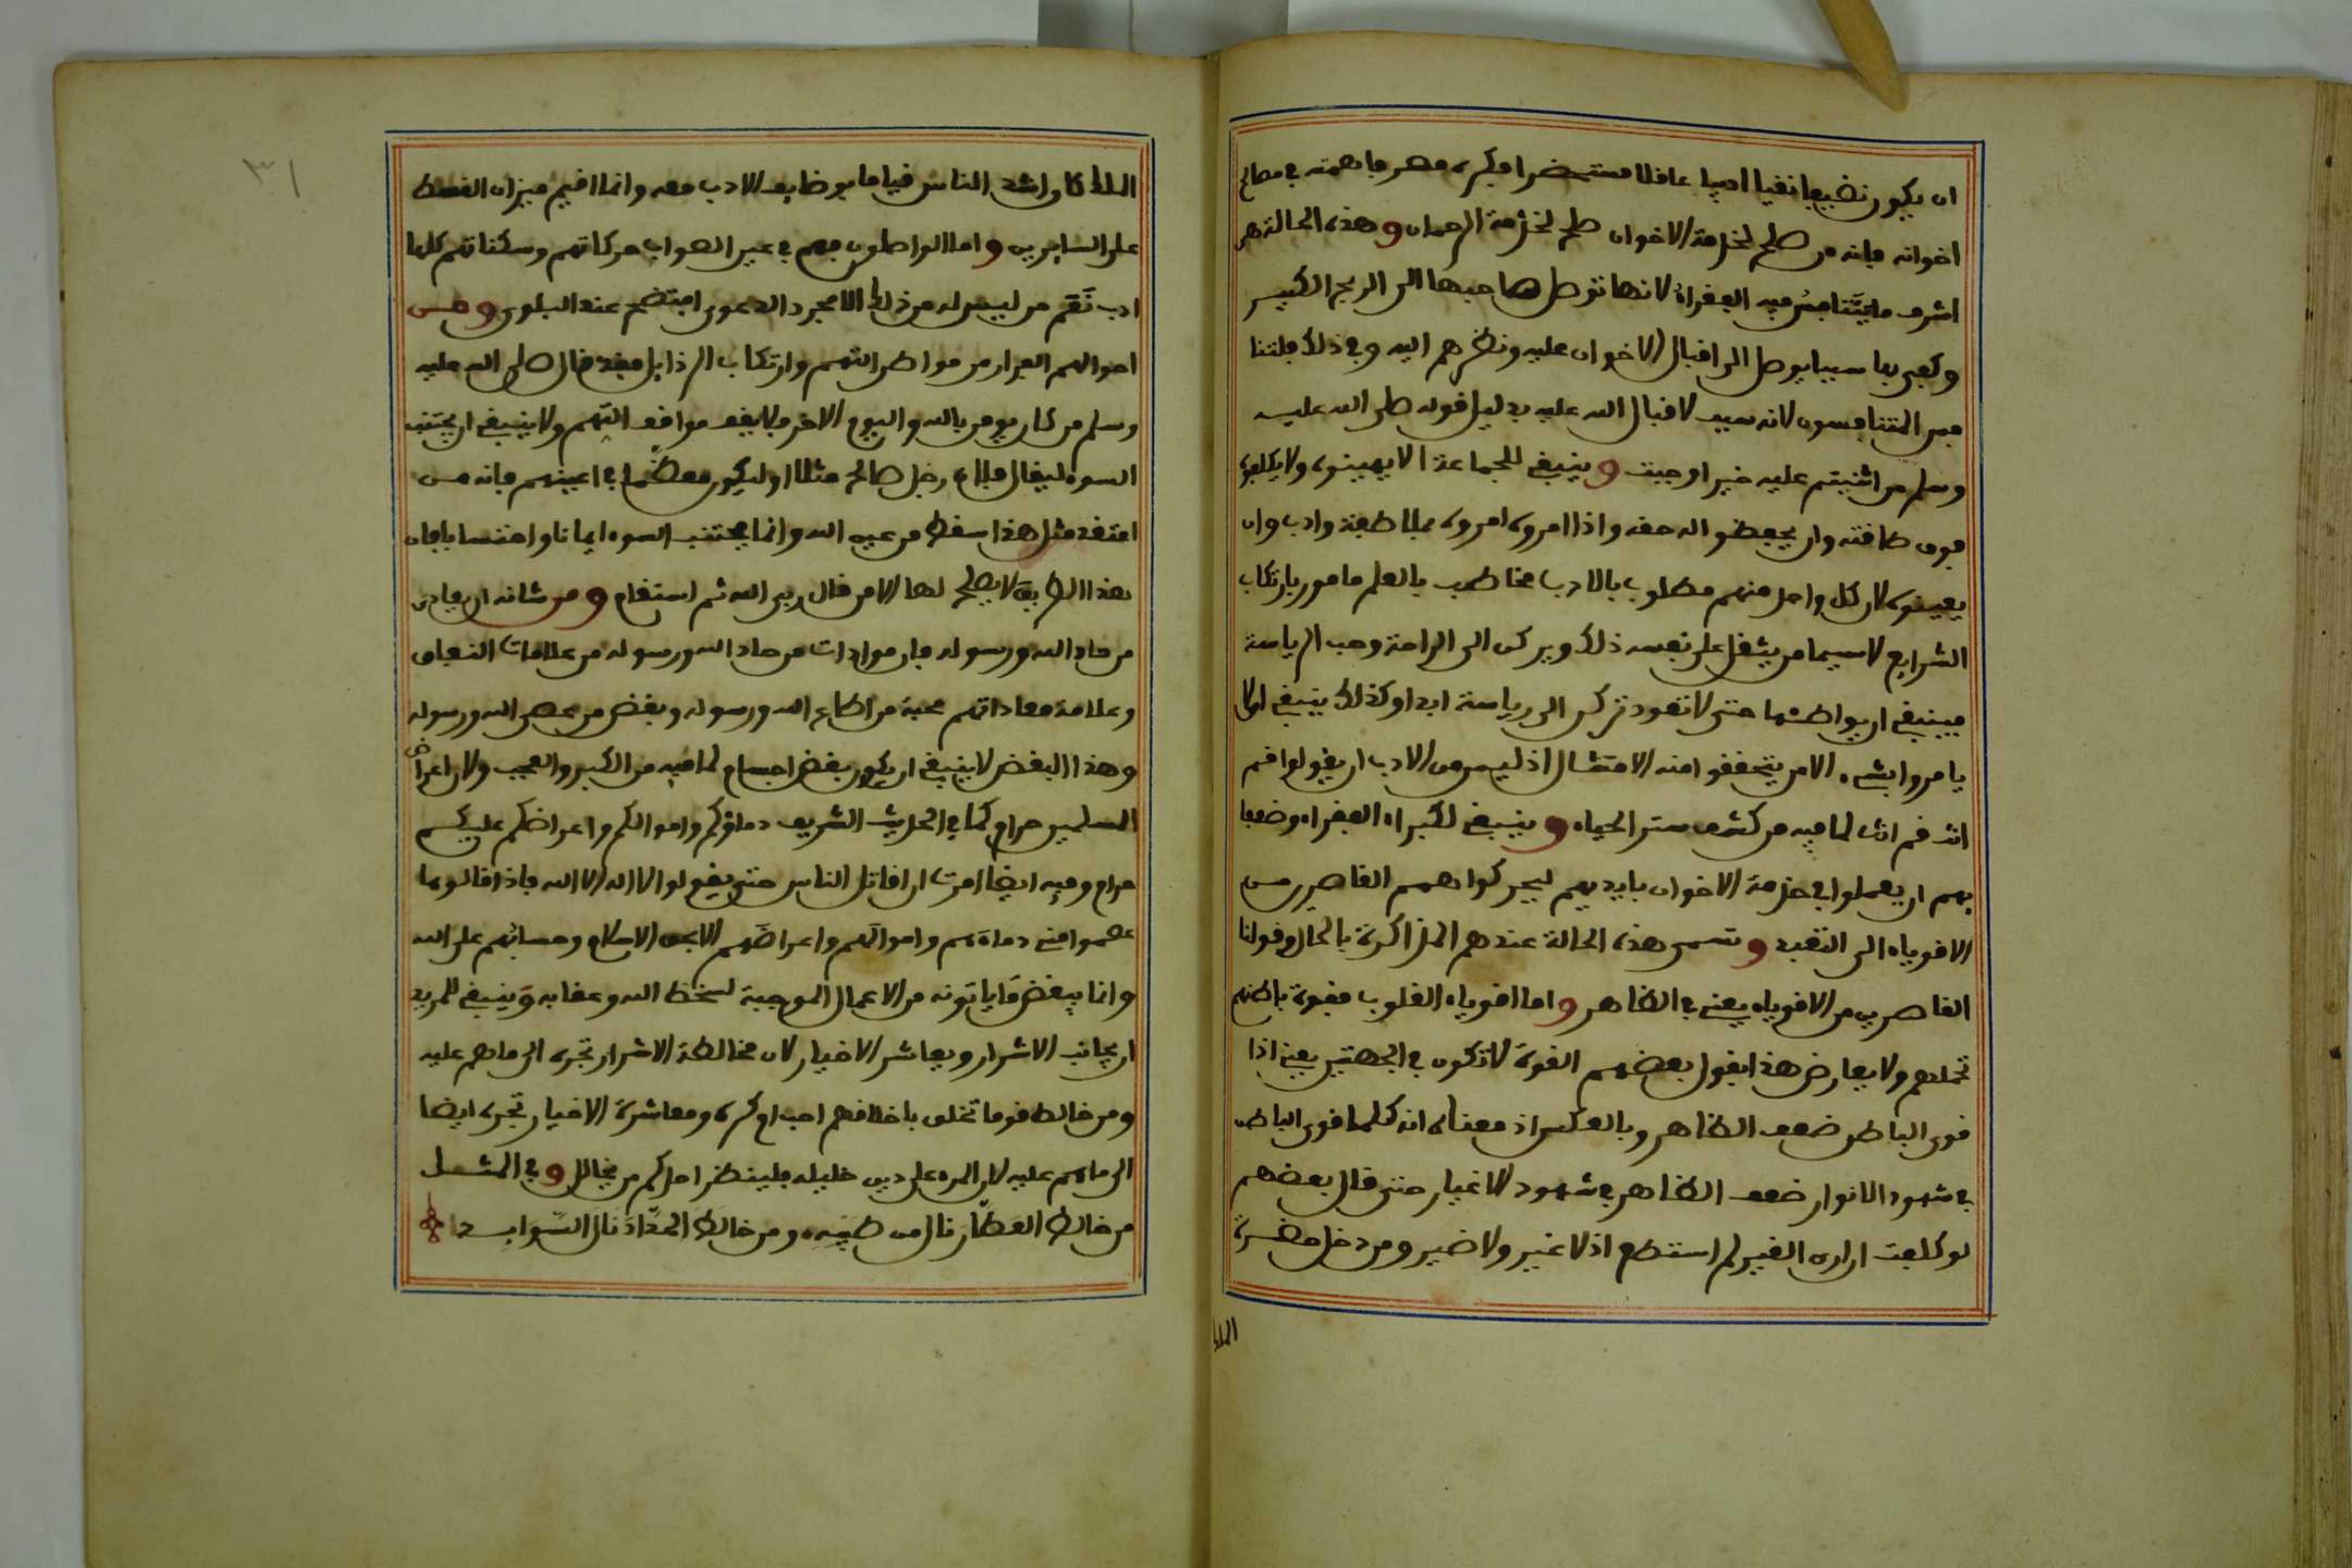 ان يكون نظيفا نقيا اديبا عاقلا مستحضرا فكره مصرفا همته في مصالح
اخوانه فانه من صلح لخدمة الاخوان صلح لخدمة الرحمان وهذه الحالة هي
اشرف ما يتنافس فيه الفقراء لانها توصل صاحبها الى الربح الكبير
وكفى بها سببا يوصل الى اقبال الاخوان عليه ونظرهم اليه وفي ذلك فليتنا
فس المتنافسون لانه سبب لاقبال الله عليه بدليل قوله صلى الله عليه
وسلم من اثنيتم عليه خيرا وجبت وينبغي للجماعة الا يهينوه ولا يكلفوه
فوق طاقته وان يحفظوا له حقه واذا امروه امروه بملاطفة وادب وان
يعينوه لان كل واحد منهم مطلوب بالادب مخاطب بالعلم مامور بارتكاب
الشرايع لا سيما من يثقل على نفسه ذلك ويركن الى الراحة وحب الرياسة
فينبغي ان يواطنها حتى لا تعود تركن الى رياسة ابدا وكذلك ينبغي الا
يامروا بشيء الا من يتحققوا منه الامتثال اذ ليس من الادب ان يقولوا قم
انت قم انت لما فيه من كشف ستر الحياء وينبغي لكبراء الفقراء وضعفا
يهم ان يعملوا في خدمة الاخوان بايديهم ليحركوا همم القاصرين من
الاقوياء الى التقيد وتسمى هذه الحالة عندهم المذاكرة بالحال وقولنا
القاصرين من الاقوياء يعني في الظاهر واما اقوياء القلوب فقوة باطنهم
تحملهم ولا يعارض هذا بقول بعضهم القوة لا تكون في الجهتين يعني اذا
قوي الباطن ضعف الظاهر وبالعكس اذ معناه انه كلما قوي الباطن
في شهود الانوار ضعف الظاهر في شهود الاغيار حتى قال بعضهم
لو كلفت ان ارى الغير لم استطع اذ لا غير ولا ضير ومن دخل حضرة
الملك
الملك كان اشد الناس قياما بوظايف الادب معه وانما اقيم ميزان القسط
على السايرين واما الواصلون فهم في عين الصواب حركاتهم وسكناتهم كلها
ادب نعم من ليس له من ذلك الا مجرد الدعوى افتضح عند البلوى ومن
احوالهم الفرار من مواطن التهم وارتكاب الرذايل فقد قال صلى الله عليه
وسلم من كان يومن بالله واليوم الاخر فلا يقف مواقف التهم ولا ينبغي ان يجتنب
السوء ليقال فلان رجل صالح مثلا او ليكون معظما في اعينهم فانه من
اعتقد مثل هذا سقط من عين الله وانما يجتنب السوء ايمانا واحتسابا فان
هذا الطريق لا يصلح لها الا من قال ربي الله ثم استقام ومن شانه ان يعادي
من حاد الله ورسوله فان موادات من حاد الله ورسوله من علامات النفاق
وعلامة معاداتهم محبة من اطاع الله ورسوله وبغض من عصى الله ورسوله
وهذا البغض لا ينبغي ان يكون بغض اجسام لما فيه من الكبر والعجب ولان اعراض
المسلمين حرام كما في الحديث الشريف دماؤكم واموالكم واعراضكم عليكم
حرام وفيه ايضا امرت ان اقاتل الناس حتى يقولوا لا اله الا الله فاذا قالوها
عصموا مني دماءهم واموالهم واعراضهم الا بحق الاسلام وحسابهم على الله
وانما يبغض ما ياتونه من الاعمال الموجبة لسخط الله وعقابه وينبغي للمريد
ان يجانب الاشرار ويعاشر الاخيار لان مخالطة الاشرار تجره الى ما هم عليه
ومن خالط قوما تخلق باخلاقهم احب او كره ومعاشرة الاخيار تجره ايضا
الى ما هم عليه لان المرء على دين خليله فلينظر احدكم من يخالل وفي المثل
من خالط العطار نال من طيبه ومن خالط الحداد نال السواد
٣١